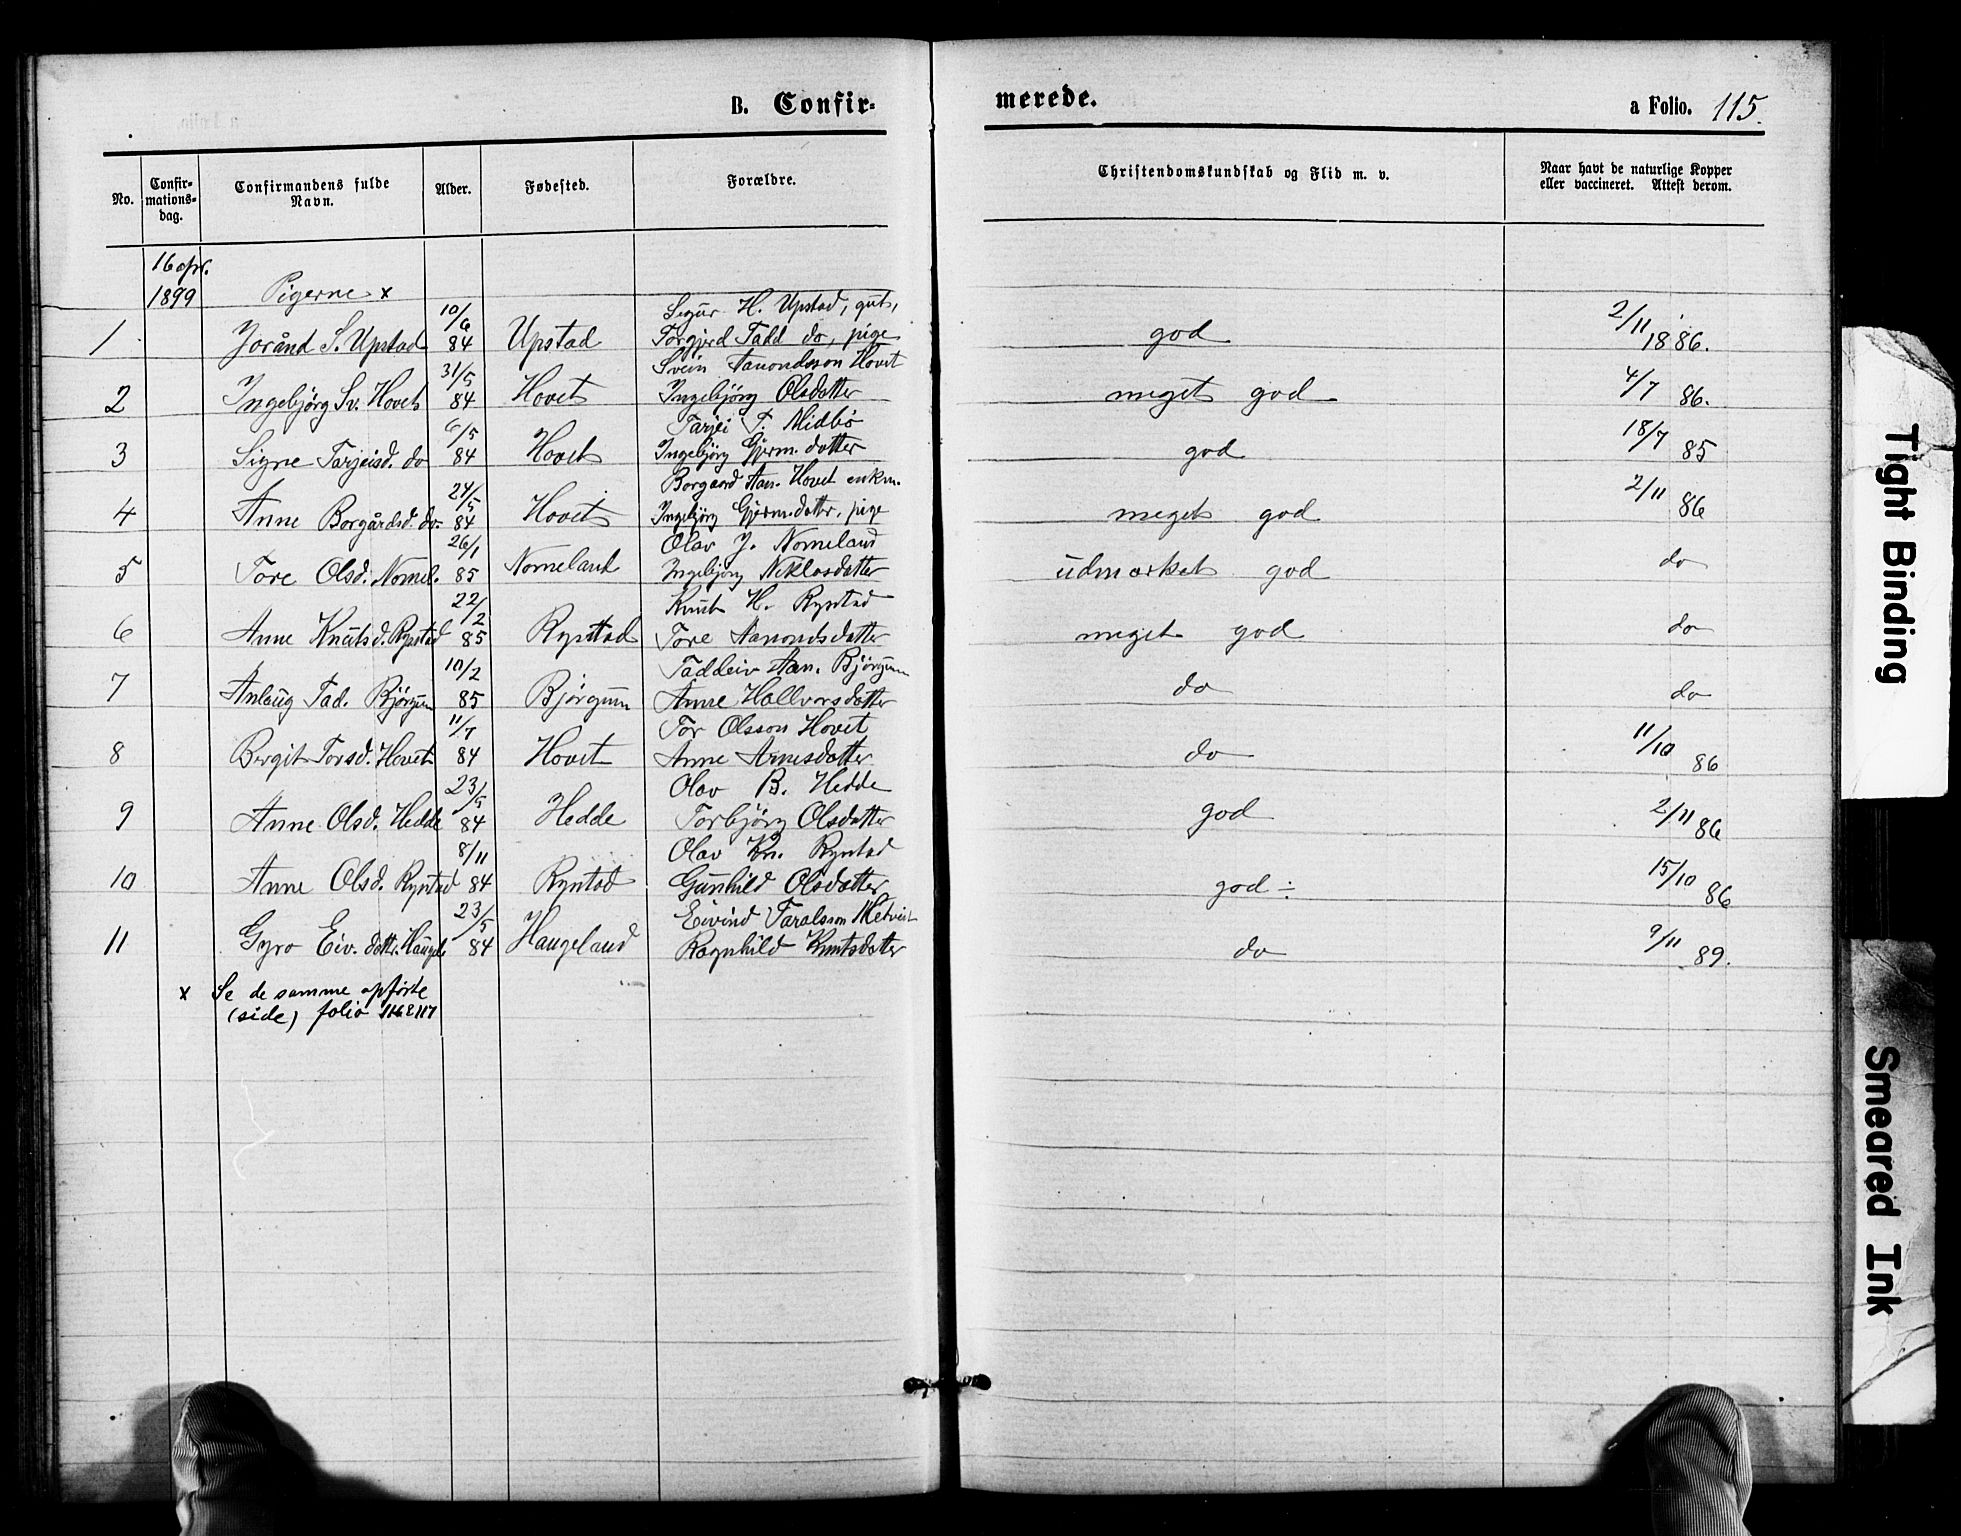 B. Confir-
merede.
a Folio. 115.
No.
Confir-
mations-
dag.
Confirmandens fulde
Navn.
Alder.
Fødested.
Forældre.
Christendomskundskab og Flid m. v.
Naar havt de naturlige Kopper
eller vaccineret. Attest derom.
16 apr.
1899 Pigerne x
10/6 Sigur H. Upstad, gut, 2/11
1 Joránd S. Upstad 84 Upstad Torgjerd Tadd do, pige god 1886.
31/5 Svein Aanondsson Hovet
2 Ingebjörg Sv. Hovet 84 Hovet Ingebjörg Olsdatter meget god 4/7 86.
6/5 Tarjei T. Midbö
3 Signe Tarjeisd. do 84 Hovet Ingebjörg Gjerm. datter god 18/7 85
24/5 Borgaard Aan. Hovet enkm.
4 Anne Borgårdsd. do- 84 Hovet Ingebjörg Gjermdatter, pige meget god 2/11 86
26/1 Olav J. Nomeland
5 Tore Olsd. Nomel. 85 Nomeland Ingebjörg Niklosdatter udmærket god do
22/2 Knut H. Rystad
6 Anne Knutsd. Rystad 85 Rystad Tore Aanondsdatter meget god do
10/2 Taddeiv Aan. Björgum
7 Anlaug Tad. Björgum 85 Björgum Anne Hallvorsdatter do do
11/7 Tor Olsson Hovet
8 Bergit Torsd. Hovet 84 Hovet Anne Arnesdatter do 11/10 86
23/5 Olav B. Hedde
9 Anne Olsd. Hedde 84 Hedde Torbjörg Olsdatter god 2/11 86
8/11 Olav Kn. Rystad
10 Anne Olsd. Rystad 84 Rystad Gunhild Olsdatter god ÷ 15/10 86
23/5 Eivind Taralsson
11 Gyro Eiv. datter Haugel. 84 Haugeland Ragnhild Knutsdatter do 9/11 89.
x Se de samme opførte
(side) folio 116 & 117
Tight Binding
Smeared Ink